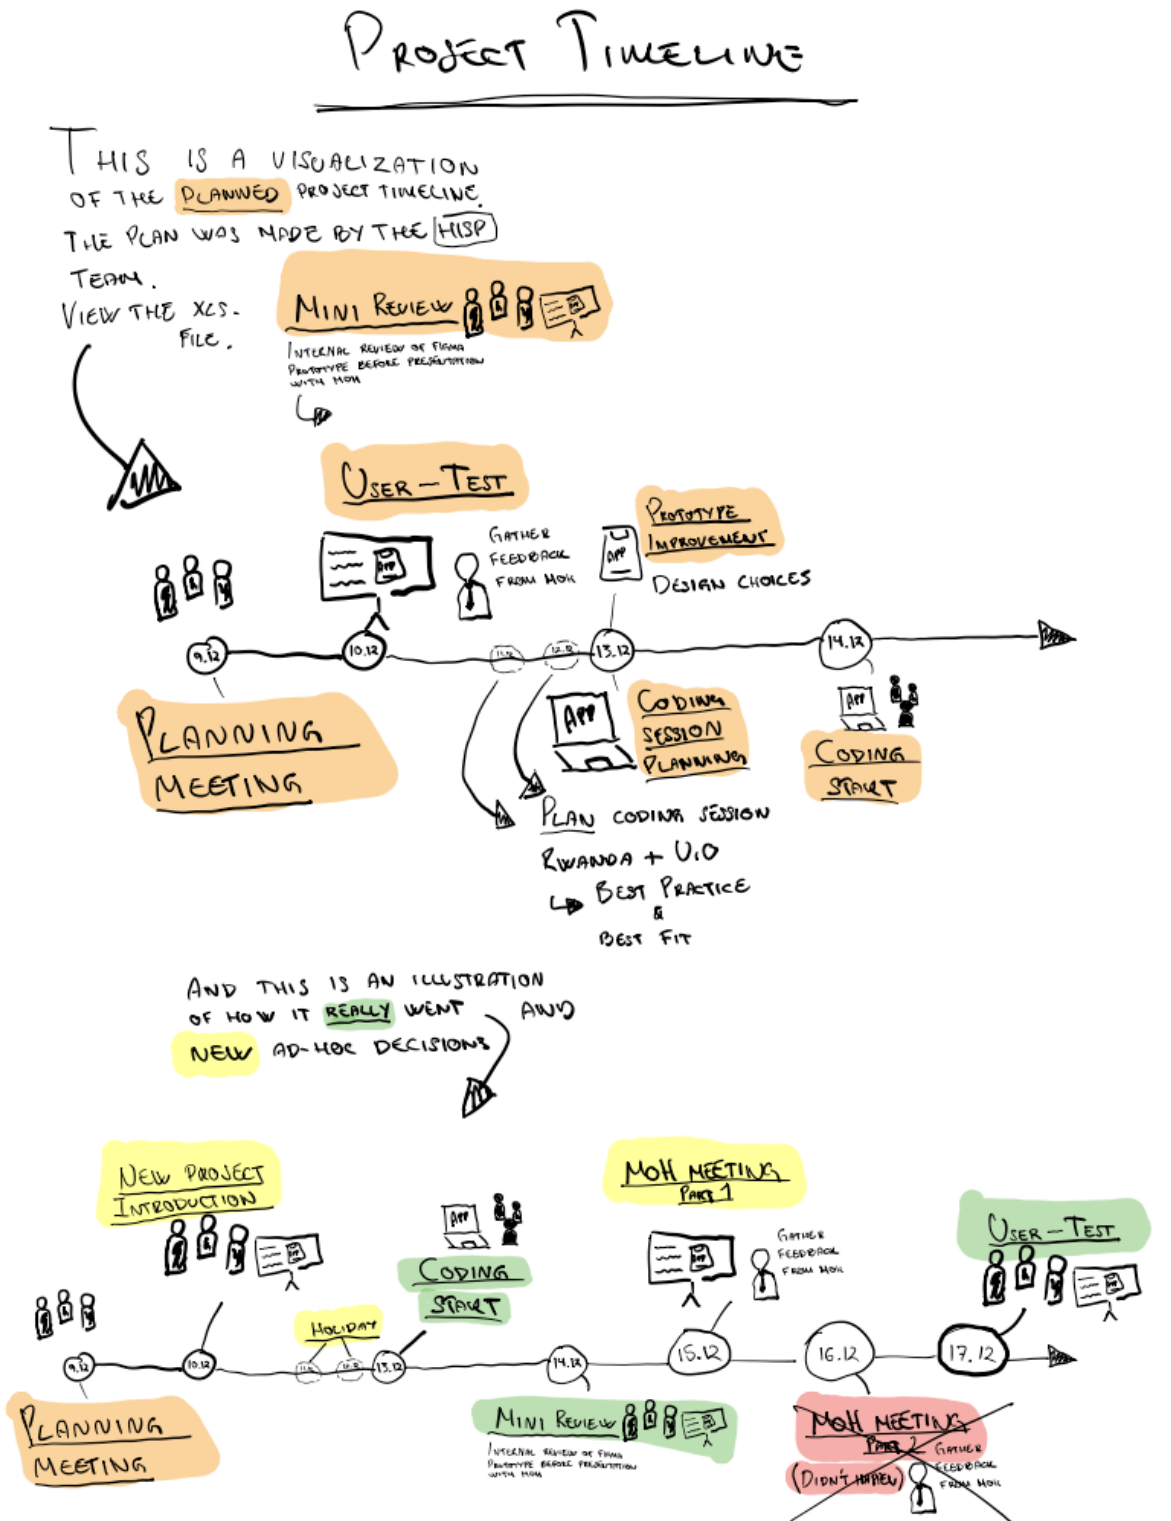 PROJECT TIMELINE
THIS IS A VISUALIZATION
OF THE PLANNED PROJECT TIMELINE.
THE PLAN WAS MADE BY THE HISP
TEAM.
VIEW THE XLS.
FILE.
MINI REVIEW
INTERNAL REVIEW OF FIGMA
PROTOTYPE BEFORE PRESENTATION
WITH MOH
USER-TEST
GATHER
FEEDBACK
FROM MOH
APP
APP
PROTOTYPE
IMPROVEMENT
DESIGN CHOICES
9.12
10.12
11.12
12.12
13.12
14.12
PLANNING
MEETING
APP
CODING
SESSION
PLANNING
APP
CODING
START
PLAN CODING SESSION
RWANDA + UiO
BEST PRACTICE
&
BEST FIT
AND THIS IS AN ILLUSTRATION
OF HOW IT REALLY WENT AND
NEW AD-HOC DECISIONS
NEW PROJECT
INTRODUCTION
APP
CODING
START
HOLIDAY
MOH MEETING
PART 1
GATHER
FEEDBACK
FROM MOH
USER-TEST
9.12
10.12
11.12
12.12
13.12
14.12
15.12
16.12
17.12
PLANNING
MEETING
MINI REVIEW
INTERNAL REVIEW OF FIGMA
PROTOTYPE BEFORE PRESENTATION
WITH MOH
MOH MEETING
PART 2
(DIDN'T HAPPEN)
GATHER
FEEDBACK
FROM MOH